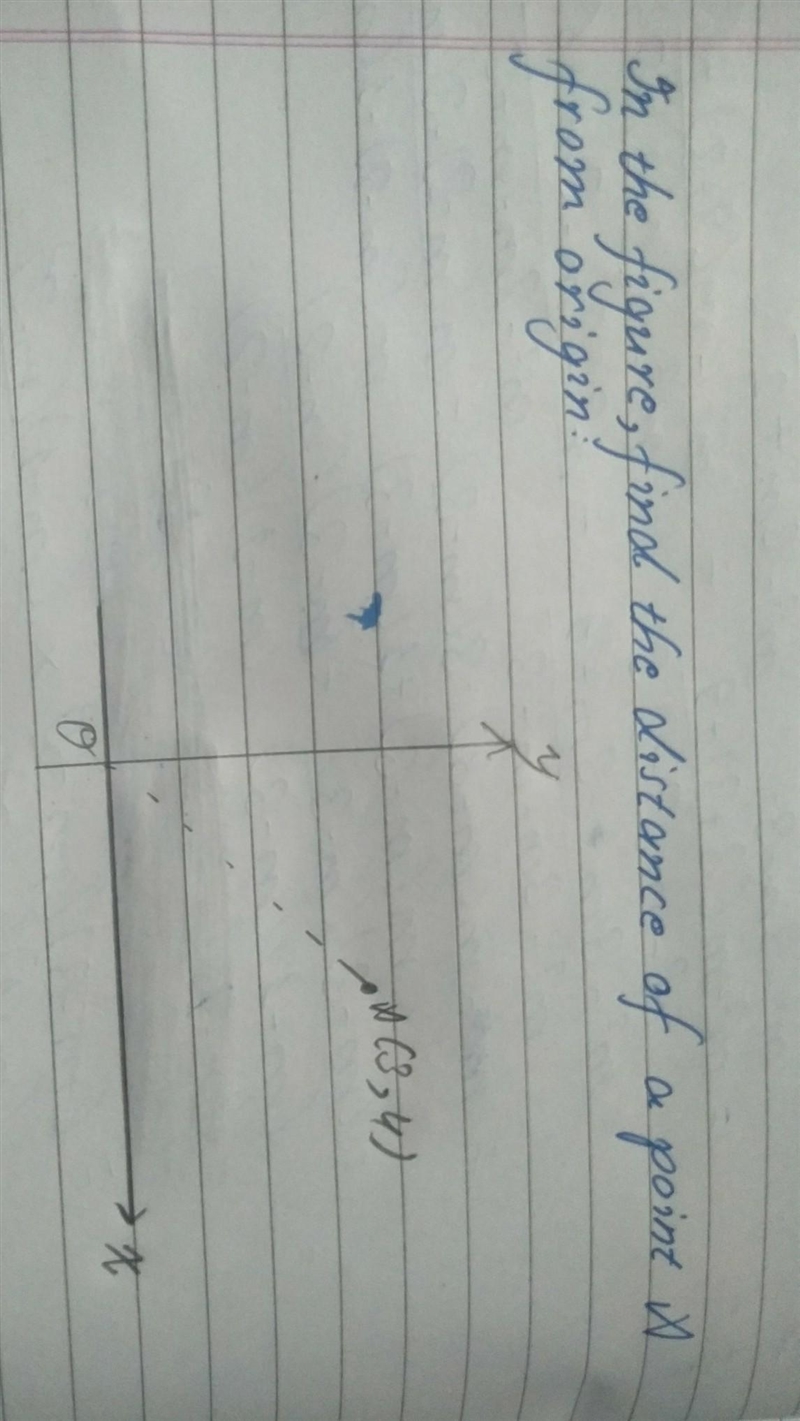 In the figure, find the distance of a point A
from origin.
y
A (3,4)
O
x